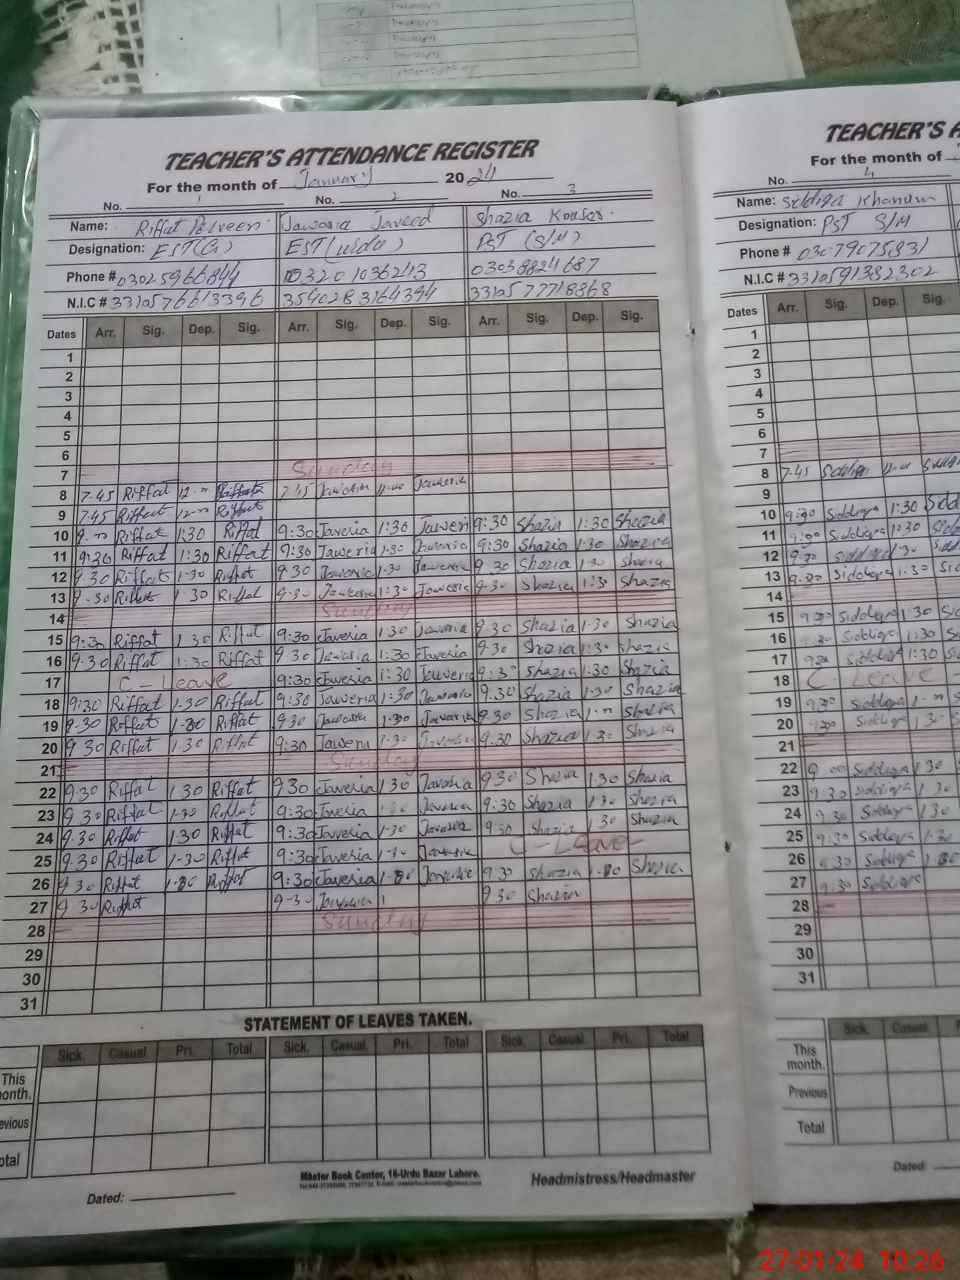 TEACHER'S ATTENDANCE REGISTER
For the month of January 2024
No. 1 No. 2 No. 3
Name: Riffat Perveen Jawaria Javeed Shazia Kousar
Designation: EST(G) EST(urdu) PST (S/M)
Phone # 03025966844 03201036213 03038824687
N.I.C # 3310576613396 3540283164394 3310577718868
Dates Arr. Sig. Dep. Sig. Arr. Sig. Dep. Sig. Arr. Sig. Dep. Sig.
1
2
3
4
5
6
7 Sunday
8 7-45 Riffat Riffat 7-45 Jawaria Jawaria
9 7-45 Riffat Riffat
10 Riffat 1:30 Riffat 9:30 Javeria 1:30 Javeri 9:30 Shazia 1:30 Shazia
11 9:30 Riffat 1:30 Riffat 9:30 Jaweria 1-30 Jawaria 9:30 Shazia 1-30 Shazia
12 9.30 Riffat 1-30 Riffat 9.30 Jawaria 1-30 Jaweria 9.30 Shazia 1-30 Shazia
13 9-30 Riffat 1-30 Riffat 9-30 Jaweria 1:30 Jaweria 9-30 Shazia 1:30 Shazia
14 Sunday
15 9:30 Riffat 1.30 Riffat 9:30 Javeria 1-30 Jawaria 9.30 Shazia 1-30 Shazia
16 9-30 Riffat 1:30 Riffat 9.30 Jawaria 1:30 Javeria 9-30 Shazia 1:30 Shazia
17 C - Leave 9:30 Javesia 1:30 Javeria 9:30 Shazia 1:30 Shazia
18 9:30 Riffat 1-30 Riffat 9:30 Jaweria 1:30 Jawaria 9.30 Shazia 1-30 Shazia
19 9-30 Riffat 1-30 Riffat 930 Jawaria 1-30 Jawaria 9.30 Shazia Shazia
20 9.30 Riffat 1.30 Riffat 9:30 Jaweria 1-30 Javeria 9.30 Shazia 1-30 Shazia
21 Sunday
22 9.30 Riffat 1.30 Riffat 930 Javeria 1.30 Javaria 9.30 Shazia 1.30 Shazia
23 9.30 Riffat 1-30 Riffat 9:30 Javeria Javaria 9:30 Shazia 1.30 Shazia
24 9.30 Riffat 1.30 Riffat 9:30 Javeria 1-30 Javaria 9.30 Shazia 1.30 Shazia
25 9.30 Riffat 1-30 Riffat 9:30 Javeria Javeria C-Leave
26 9.30 Riffat 1-30 Riffat 9:30 Javeria 1-30 Javeria 9.30 Shazia 1-30 Shazia
27 9.30 Riffat 9-30 Javaria 1 9.30 Shazia
28 Sunday
29
30
31
STATEMENT OF LEAVES TAKEN.
Sick. Casual. Pri. Total Sick. Casual. Pri. Total Sick. Casual. Pri. Total
This
onth.
evious
otal
Master Book Center, 16-Urdu Bazar Lahore.
Headmistress/Headmaster
Dated:
TEACHER'S A
For the month of
No. 4
Name: Siddiqa Khanum
Designation: PST S/M
Phone # 03079075831
N.I.C # 3310591382302
Dates Arr. Sig. Dep. Sig.
1
2
3
4
5
6
7
8 7-45 Siddiqa
9
10 9:30 Siddiqa 1:30 Sidd
11 Siddiqa 1:30
12 9-30 Siddiqa 1-30
13 9-30 Siddiqa 1-30
14
15 9:30 Siddiqa 1-30
16 9:30 Siddiqa 1:30
17 Siddiqa 1:30
18 C. Leave -
19 9-30 Siddiqa
20 9:30 Siddiqa 1-30
21
22 Siddiqa 1 30
23 9-30 Siddiqa
24 9.30 Siddiqa 1.30
25 9:30 Siddiqa 1-30
26 9.30 Siddiqa
27 9.30 Siddiqa
28
29
30
31
Sick. Casual.
This
month.
Previous
Total
Dated:
27-01-24 10:26